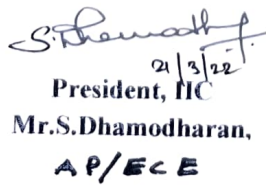 S. Dhamodh
21/3/22
President, IIC
Mr.S.Dhamodharan,
AP/ECE